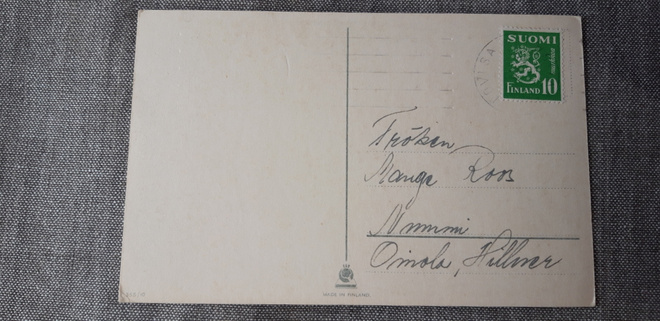 SUOMI
FINLAND 10
Fröken
Mange Roos
Nummi
Oinola, Hillner
MADE IN FINLAND